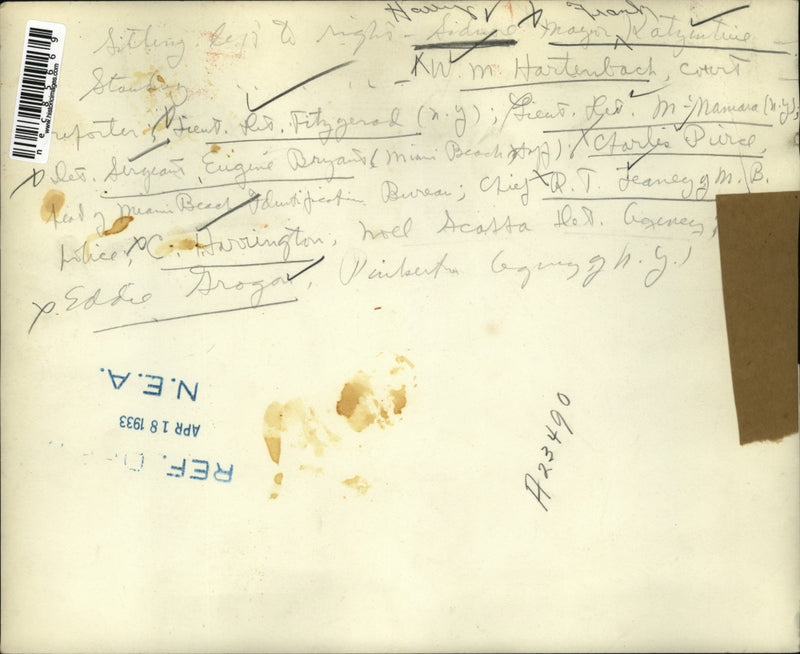 Harry Frank
Sitting left to right - Mayor Katzentine
Standing " " " - W. M. Hartenbach, court
reporter; Lieut. Det. Fitzgerald (N.Y.); Lieut. Det. McNamara (N.Y.);
Det. Sergeant Eugene Bryant (Miami Beach); Charles Pierce,
head of Miami Beach Identification Bureau; Chief R. T. of M. B.
police; C. Harrington, Noel Scaffa Det. Agency;
Eddie Grogan, Pinkerton Agency of N.Y.)
N.E.A.
APR 18 1933
REF.
A23490
www.historicimages.com